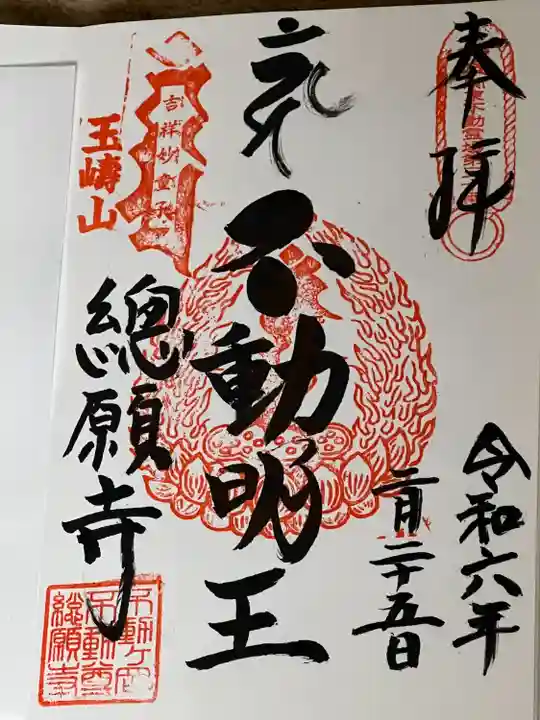 奉拝
令和六年
二月二十五日
不動明王
吉祥妙童子
玉嶹山
總願寺
不動ヶ岡
不動尊
総願寺